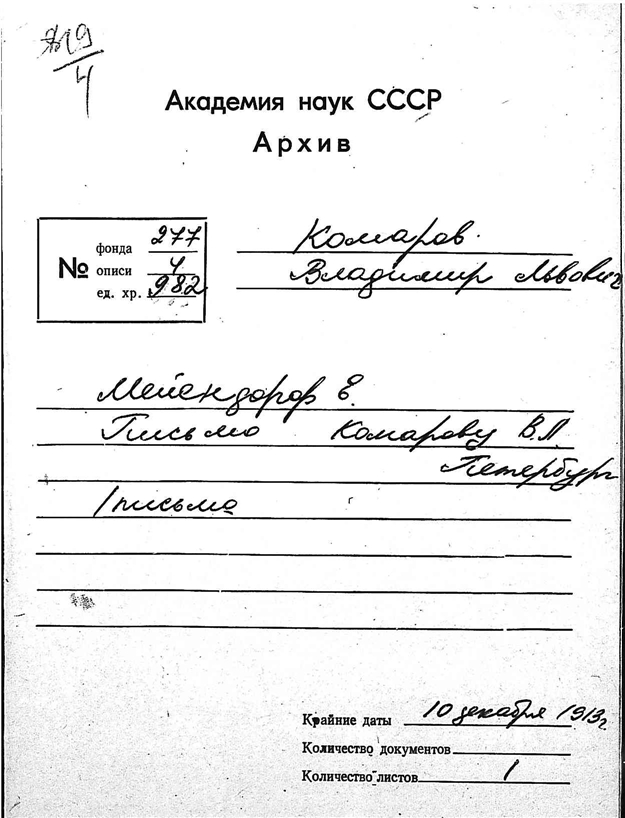 №19
4
Академия наук СССР
Архив
№
фонда 277
описи 4
ед. хр. 982
Комаров
Владимир Львович
Мейендорф Е.
Письмо Комарову В.Л.
Петербург
1 письмо
Крайние даты 10 декабря 1913г.
Количество документов
Количество листов 1